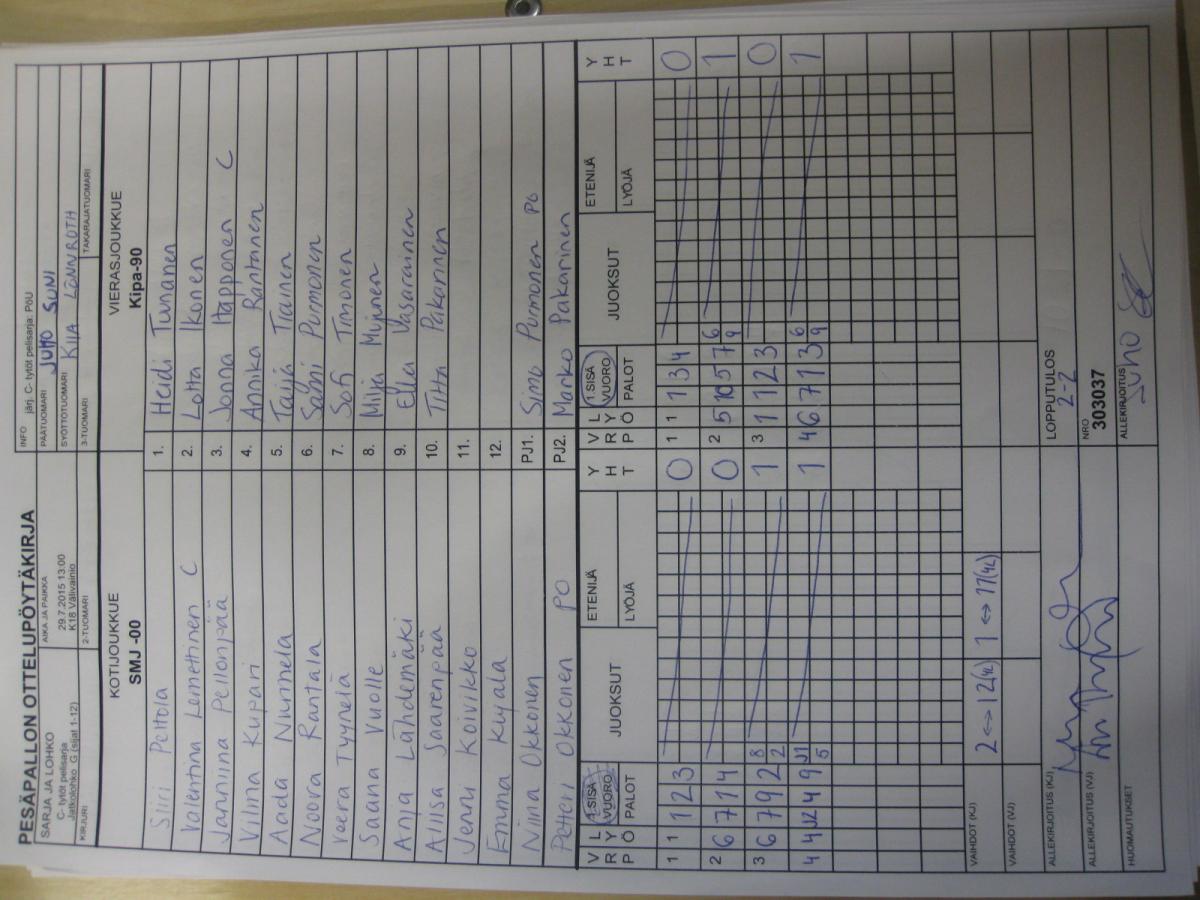 PESÄPALLON OTTELUPÖYTÄKIRJA
SARJA JA LOHKO
C- tytöt pelisarja
Jatkolohko G (sijat 1-12)
AIKA JA PAIKKA
29.7.2015 13:00
K18 Välivainio
INFO järj. C- tytöt pelisarja: PöU
PÄÄTUOMARI JUHO SUNI
SYÖTTÖTUOMARI KIIA LÖNNROTH
KIRJURI
2-TUOMARI
3-TUOMARI
TAKARAJATUOMARI
KOTIJOUKKUE
SMJ -00
VIERASJOUKKUE
Kipa-90
Siiri Peltola 1. Heidi Turunen
Valentina Lemettinen C 2. Lotta Ikonen
Janniina Pellonpää 3. Jonna Happonen C
Vilma Kupari 4. Annika Rantanen
Aada Nummela 5. Taija Träinen
Noora Rantala 6. Salmi Purmonen
Veera Tyynelä 7. Sofi Timonen
Saana Vuolle 8. Milja Myjunen
Anja Lähdemäki 9. Ella Vasarainen
Aliisa Saarenpää 10. Titta Pakarinen
Jenni Koivikko 11.
Emma Kujala 12.
Niina Okkonen PJ1. Simo Purmonen PO
Petteri Okkonen PO PJ2. Marko Pakarinen
V R P L Y Ö 1.SISÄ VUORO PALOT JUOKSUT ETENIJÄ LYÖJÄ Y H T V R P L Y Ö 1.SISÄ VUORO PALOT JUOKSUT ETENIJÄ LYÖJÄ Y H T
1 1 1 2 3 0 1 1 1 3 4 0
2 6 7 1 4 0 2 5 10 5 7 6 9 1
3 6 7 9 2 8 2 1 3 1 1 2 3 0
4 4 12 4 9 11 5 1 4 6 7 1 3 6 9 1
VAIHDOT (KJ) 2 ↔ 12(4L) 1 ↔ 11(4L)
VAIHDOT (VJ)
ALLEKIRJOITUS (KJ)
LOPPUTULOS
2-2
ALLEKIRJOITUS (VJ)
NRO
303037
HUOMAUTUKSET
ALLEKIRJOITUS
Juho